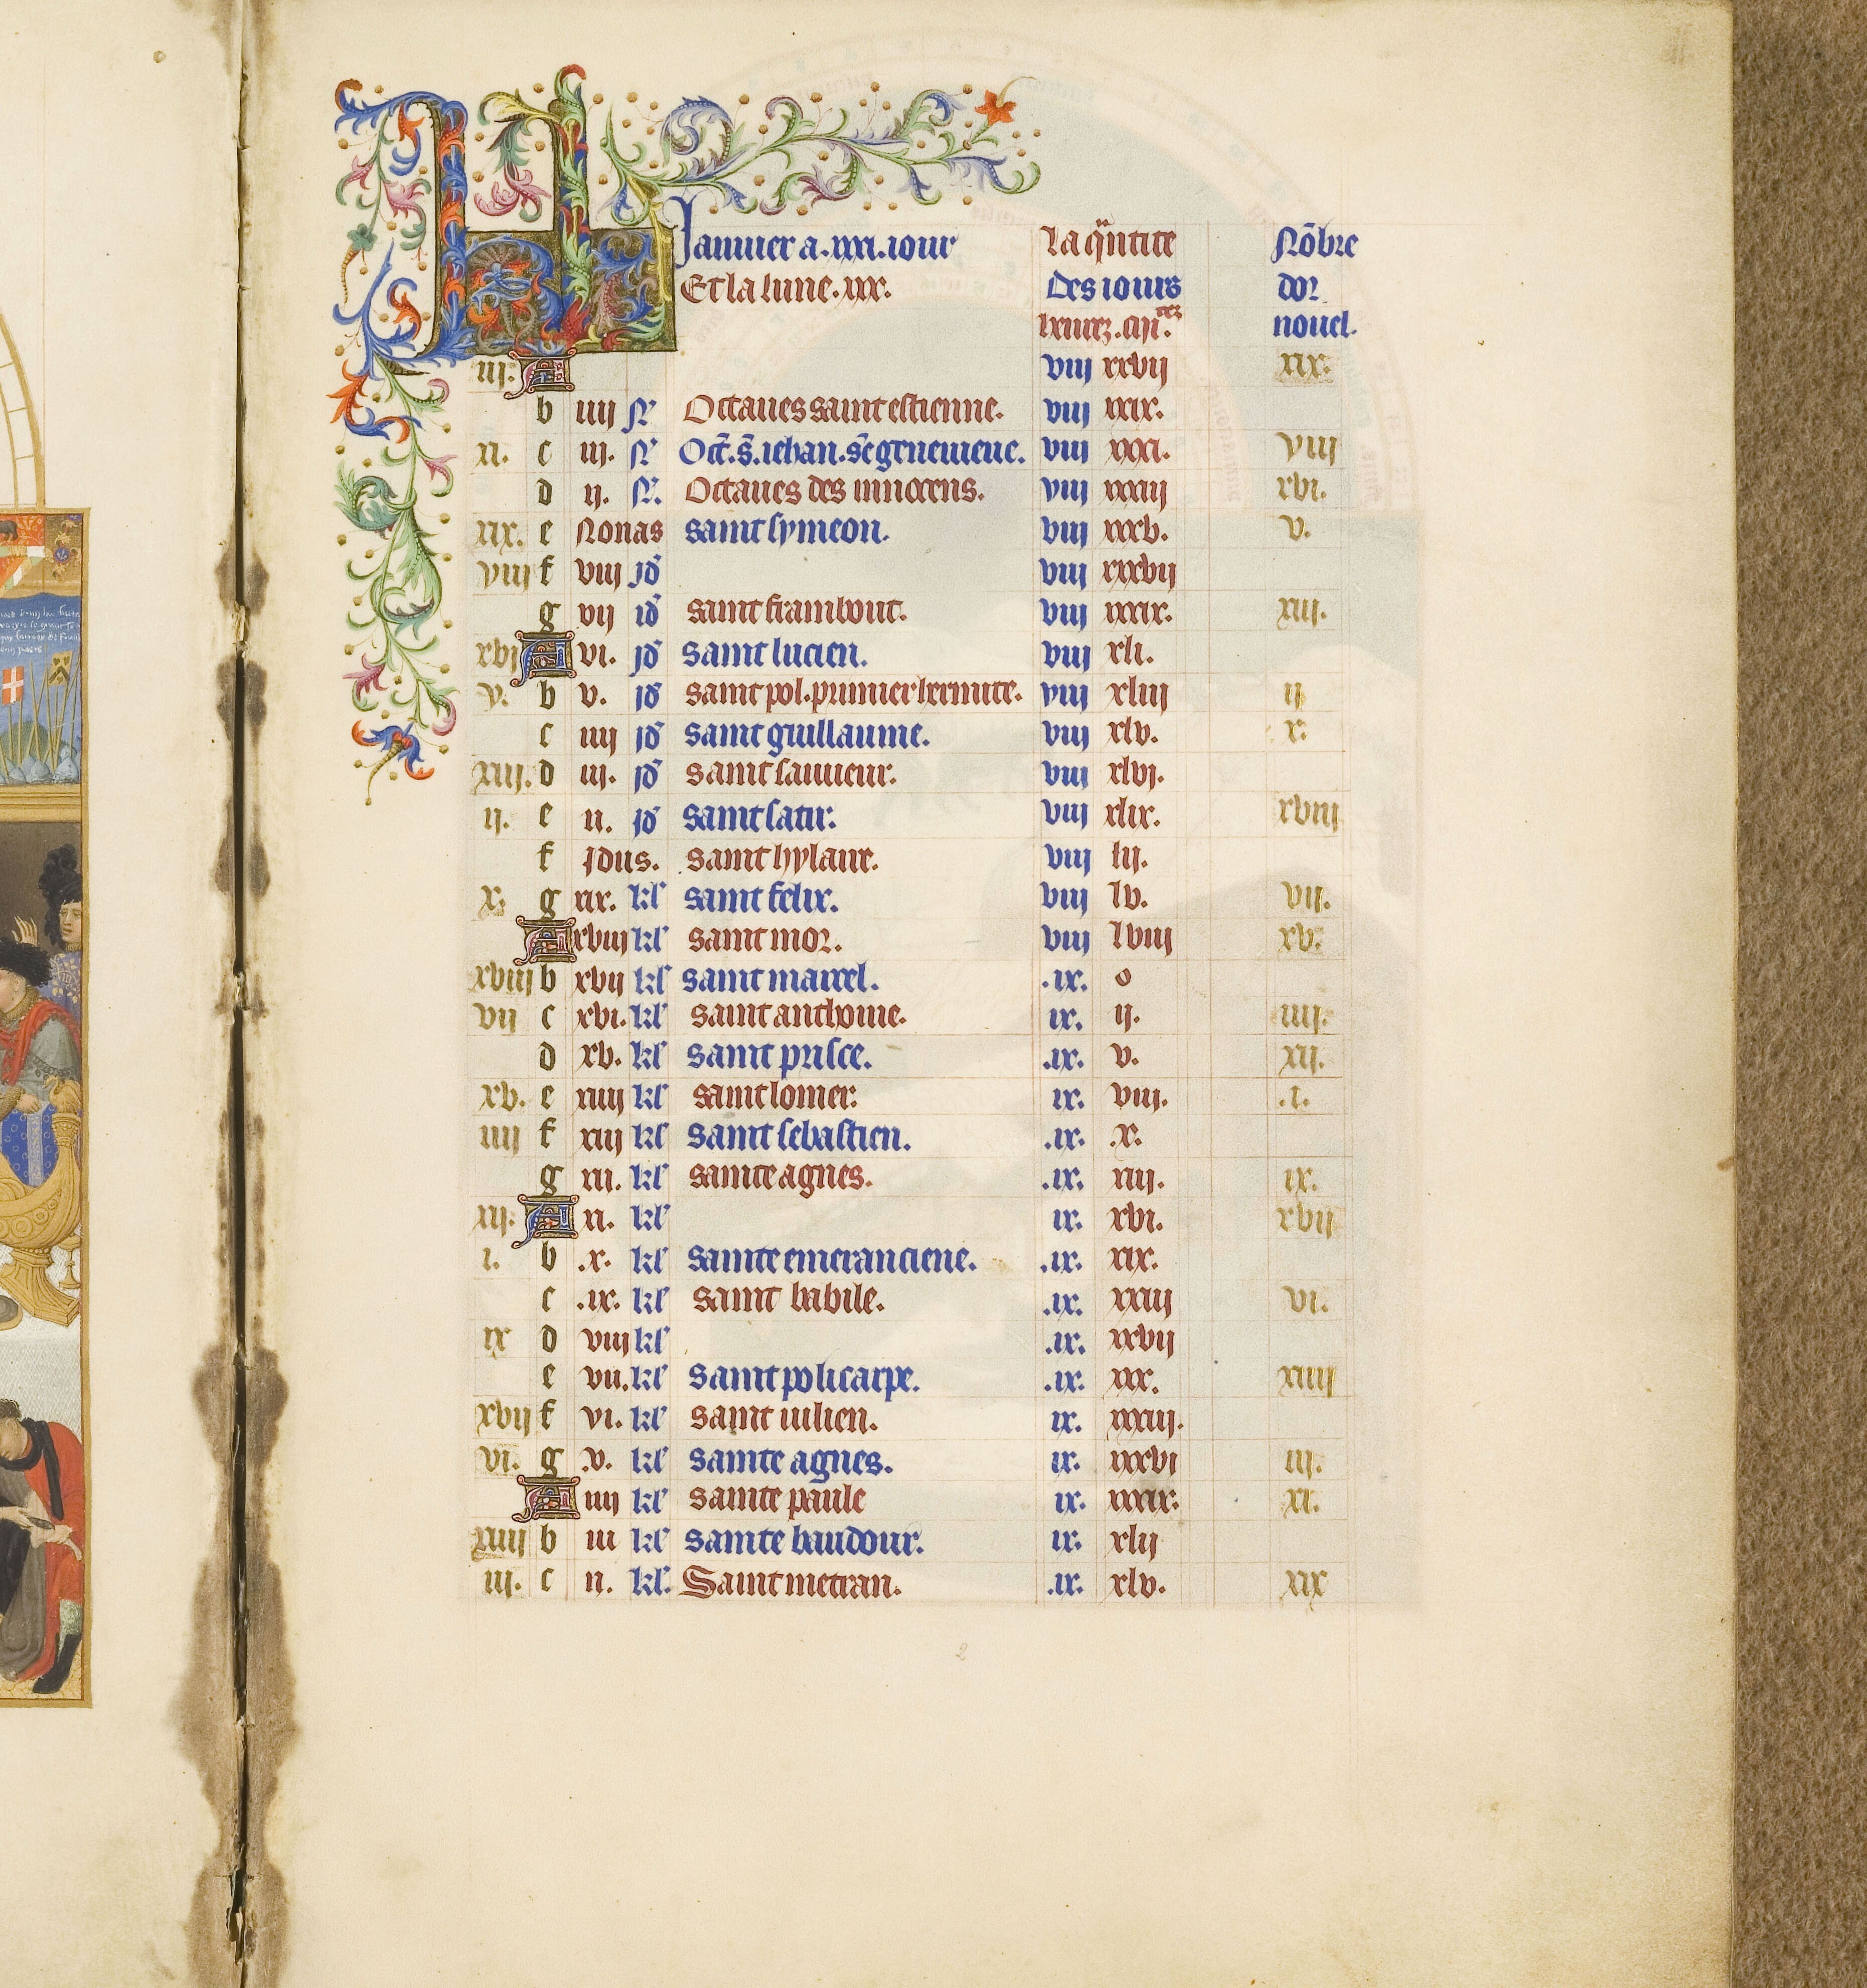 Januier a .xxxi. iour La q̃ntite Nõbre
Et la lune .xxx. des iours dor
heurez .minᵗᵉᶻ nouel.
iij. A viij xxvij xix.
b iiij N̾ Octaues saint estienne. viij xxix.
xi. c iij. N̾ Oct̃. s̃. iehan. sc̃e geneuieue. viij xxxi. viij
d ij. N̾. Octaues des innocens. viij xxxiij xvi.
xix. e Nonas saint symeon. viij xxxv. v.
viij f viij jd̾ viij xxxvij
g vij id̾ saint frambout. viij xxxix. xiij.
xvj A vi. jd̾ saint lucien. viij xli.
v. b v. jd̾ saint pol. primier hermite. viij xliij ij
c iiij jd̾ saint guillaume. viij xlv. x.
xiij. d iij. jd̾ saint sauueur. viij xlvj.
ij. e ii. jd̾ saint satir. viij xlix. xviij
f Jdus. saint hylaire. viij lij.
x. g xix. kl̾ saint felix. viij lv. vij.
A xviij kl̾ saint mor. viij lviij xv.
xviij b xvij kl̾ saint marcel. .ix. o
vij c xvi. kl̾ saint anthoine. ix. ij. iiij.
d xv. kl̾ saint prisce. .ix. v. xij.
xv. e xiiij kl̾ saint lomer. ix. viij. .i.
iiij f xiij kl̾ saint sebastien. .ix. .x.
g xii. kl̾ sainte agnes. .ix. xiij. ix.
xij. A xi. kl̾ ix. xvi. xvij
i. b .x. kl̾ sainte emeranciene. .ix. xix.
c .ix. kl̾ saint babile. .ix. xxiij vi.
ix d viij kl̾ .ix. xxvij
e vii. kl̾ saint policarpe. .ix. xxx. xiiij
xvij f vi. kl̾ saint iulien. ix. xxxiij.
vi. g .v. kl̾ sainte agnes. ix. xxxvi iij.
A iiij kl̾ sainte paule ix. xxxix. xi.
xiiij b iii kl̾ sainte baudour. ix. xlij
iij. c ii. kl̾. Saint metran. .ix. xlv. xix
2